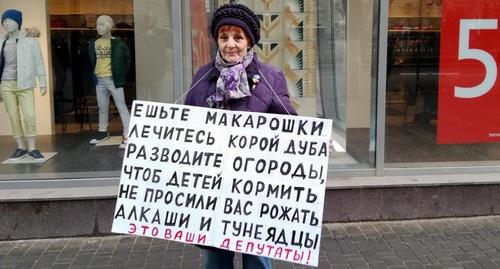 ЕШЬТЕ МАКАРОШКИ
ЛЕЧИТЕСЬ КОРОЙ ДУБА
РАЗВОДИТЕ ОГОРОДЫ,
ЧТОБ ДЕТЕЙ КОРМИТЬ
НЕ ПРОСИЛИ ВАС РОЖАТЬ
АЛКАШИ И ТУНЕЯДЦЫ
ЭТО ВАШИ ДЕПУТАТЫ!
5